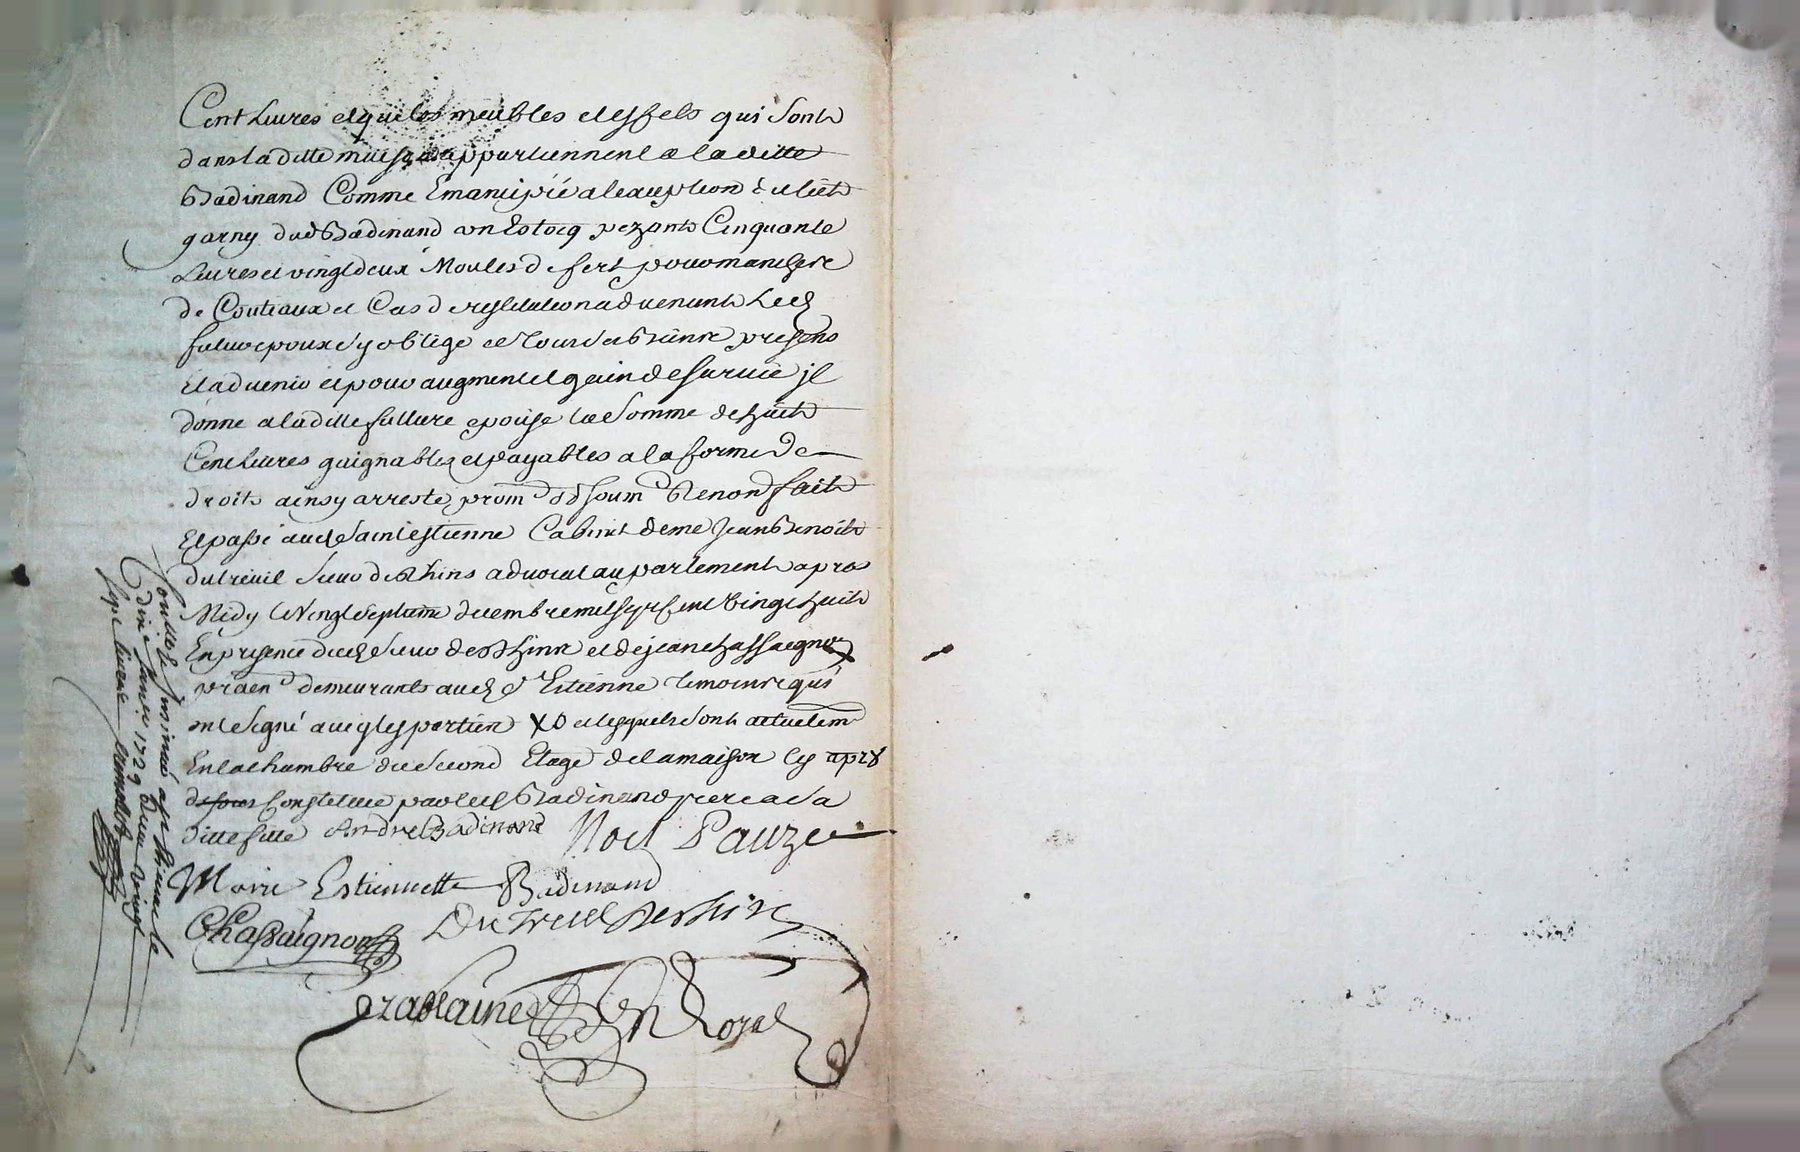 Cent Livres et que les meubles et effets qui sont
dans la ditte maison appartiennent a la ditte
Badinand Comme Emancipée a l'exception du lict
garny dud Badinand un Estocq pezants Cinquante
Livres et vingt deux Moules de fert pour manche
de Couteaux et Cas de restitution advenant Led
futur epoux s'y oblige et tous ses biens presens
Et advenir et pour augment et gain de survie jl
donne a la ditte future epouse la Somme de huit
Cent Livres gaignables et payables a la forme de
droits ainsy arresté prom obl soum renon fait
Et passé aud Saint estienne Cabinet de me Jean Benoit
dutreuil Sieur de Rhins advocat au parlement apres
Midy le Vingt Septieme decembre mil sept cent vingt huit
En presence dud Sieur de Rhins et de jean chassaignon
praen demeurants aud St Estienne temoins qui
ont signé avec les parties X et lesquels sont actuelem
En la chambre du second Etage de la maison cy apres
dessus Constituée par led Badinand pere a sa
ditte fille André Badinand Noel Pauze
Marie Estiennette Badinand
Chassaignon Du Treuil De Rhins
Royal
Controllé Insinué a St Etienne le
janv 1729 Reçu vingt
Sept livres